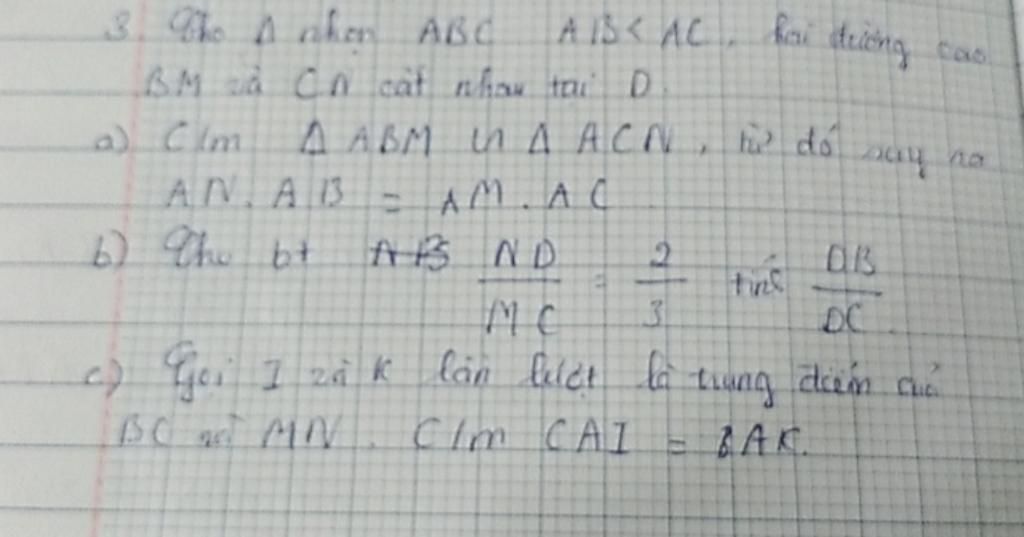 3. Cho Δ nhọn ABC AB < AC. hai đường cao
BM và CN cắt nhau tại D.
a) C/m Δ ABM ᔕ Δ ACN, từ đó suy ra
AN. AB = AM. AC
b) Cho bt AB ND/MC = 2/3 tính DB/DC
c) Gọi I và K lần lượt là trung điểm của
BC và MN. C/m CAI = BAK.